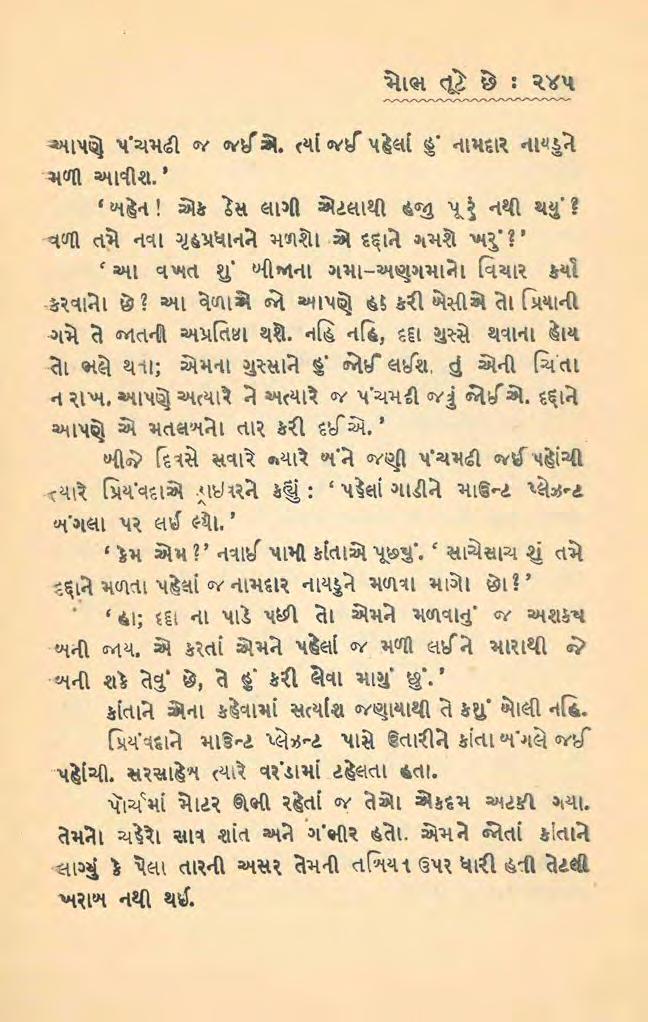 મોભ તૂટે છે : ૨૪૫
આપણે પંચમઢી જ જઈએ. ત્યાં જઈ પહેલાં હું નામદાર નાયડુને
મળી આવીશ.’
‘બહેન! એક ઠેસ લાગી એટલાથી હજી પૂરું નથી થયું?
વળી તમે નવા ગૃહપ્રધાનને મળશો એ દદ્દાને ગમશે ખરું?’
‘આ વખત શું બીજાના ગમા–અણગમાનો વિચાર કર્યા
કરવાનો છે? આ વેળાએ જો આપણે હઠ કરી બેસીએ તો પ્રિયાની
ગમે તે જાતની અપ્રતિષ્ઠા થશે. નહિ નહિ, દદ્દા ગુસ્સે થવાના હોય
તો ભલે થતા; એમના ગુસ્સાને હું જોઈ લઈશ. તું એની ચિંતા
ન રાખ. આપણે અત્યારે ને અત્યારે જ પંચમઢી જવું જોઈએ. દદ્દાને
આપણે એ મતલબનો તાર કરી દઈએ.’
બીજે દિવસે સવારે જ્યારે બંને જણી પંચમઢી જઈ પહોંચી
ત્યારે પ્રિયંવદાએ ડ્રાઇવરને કહ્યું : ‘પહેલાં ગાડીને માઉન્ટ પ્લેઝન્ટ
બંગલા પર લઈ લ્યો.’
‘કેમ એમ?’ નવાઈ પામી કાંતાએ પૂછ્યું. ‘સાચેસાચ શું તમે
દદ્દાને મળતા પહેલાં જ નામદાર નાયડુને મળવા માગો છો?’
‘હા; દદ્દા ના પાડે પછી તો એમને મળવાનું જ અશક્ય
બની જાય. એ કરતાં એમને પહેલાં જ મળી લઈને મારાથી જે
બની શકે તેવું છે, તે હું કરી લેવા માગું છું.’
કાંતાને એના કહેવામાં સત્યાંશ જણાયાથી તે કશું બોલી નહિ.
પ્રિયંવદાને માઉન્ટ પ્લેઝન્ટ પાસે ઉતારીને કાંતા બંગલે જઈ
પહોંચી. સરસાહેબ ત્યારે વરંડામાં ટહેલતા હતા.
પોર્ચમાં મોટર ઊભી રહેતાં જ તેઓ એકદમ અટકી ગયા.
તેમનો ચહેરો સાવ શાંત અને ગંભીર હતો. એમને જોતાં કાંતાને
લાગ્યું કે પેલા તારની અસર તેમની તબિયત ઉપર ધારી હતી તેટલી
ખરાબ નથી થઈ.